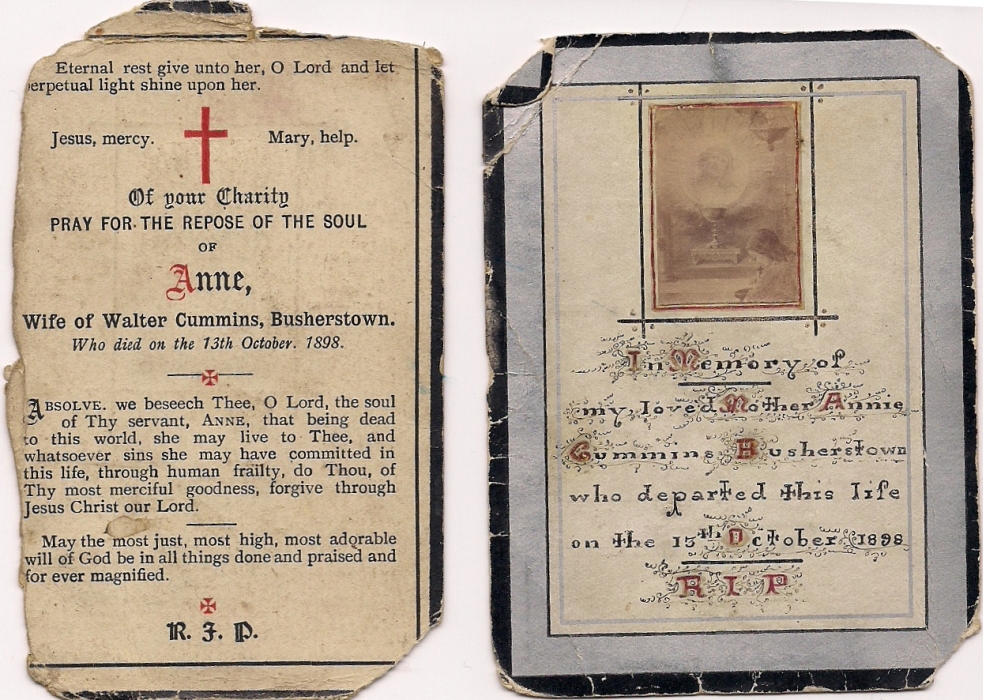 Eternal rest give unto her, O Lord and let
perpetual light shine upon her.
Jesus, mercy. Mary, help.
Of your Charity
PRAY FOR THE REPOSE OF THE SOUL
OF
Anne,
Wife of Walter Cummins, Busherstown.
Who died on the 13th October. 1898.
ABSOLVE. we beseech Thee, O Lord, the soul
of Thy servant, ANNE, that being dead
to this world, she may live to Thee, and
whatsoever sins she may have committed in
this life, through human frailty, do Thou, of
Thy most merciful goodness, forgive through
Jesus Christ our Lord.
May the most just, most high, most adorable
will of God be in all things done and praised and
for ever magnified.
R. I. P.
In Memory of
my loved Mother Annie
Cummins Busherstown
who departed this life
on the 13th October 1898
R I P